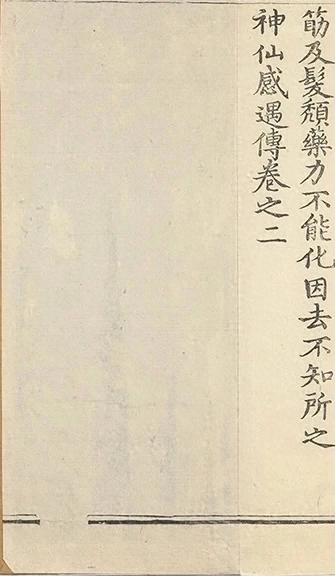 筋及髮頹藥力不能化因去不知所之
神仙感遇傳卷之二